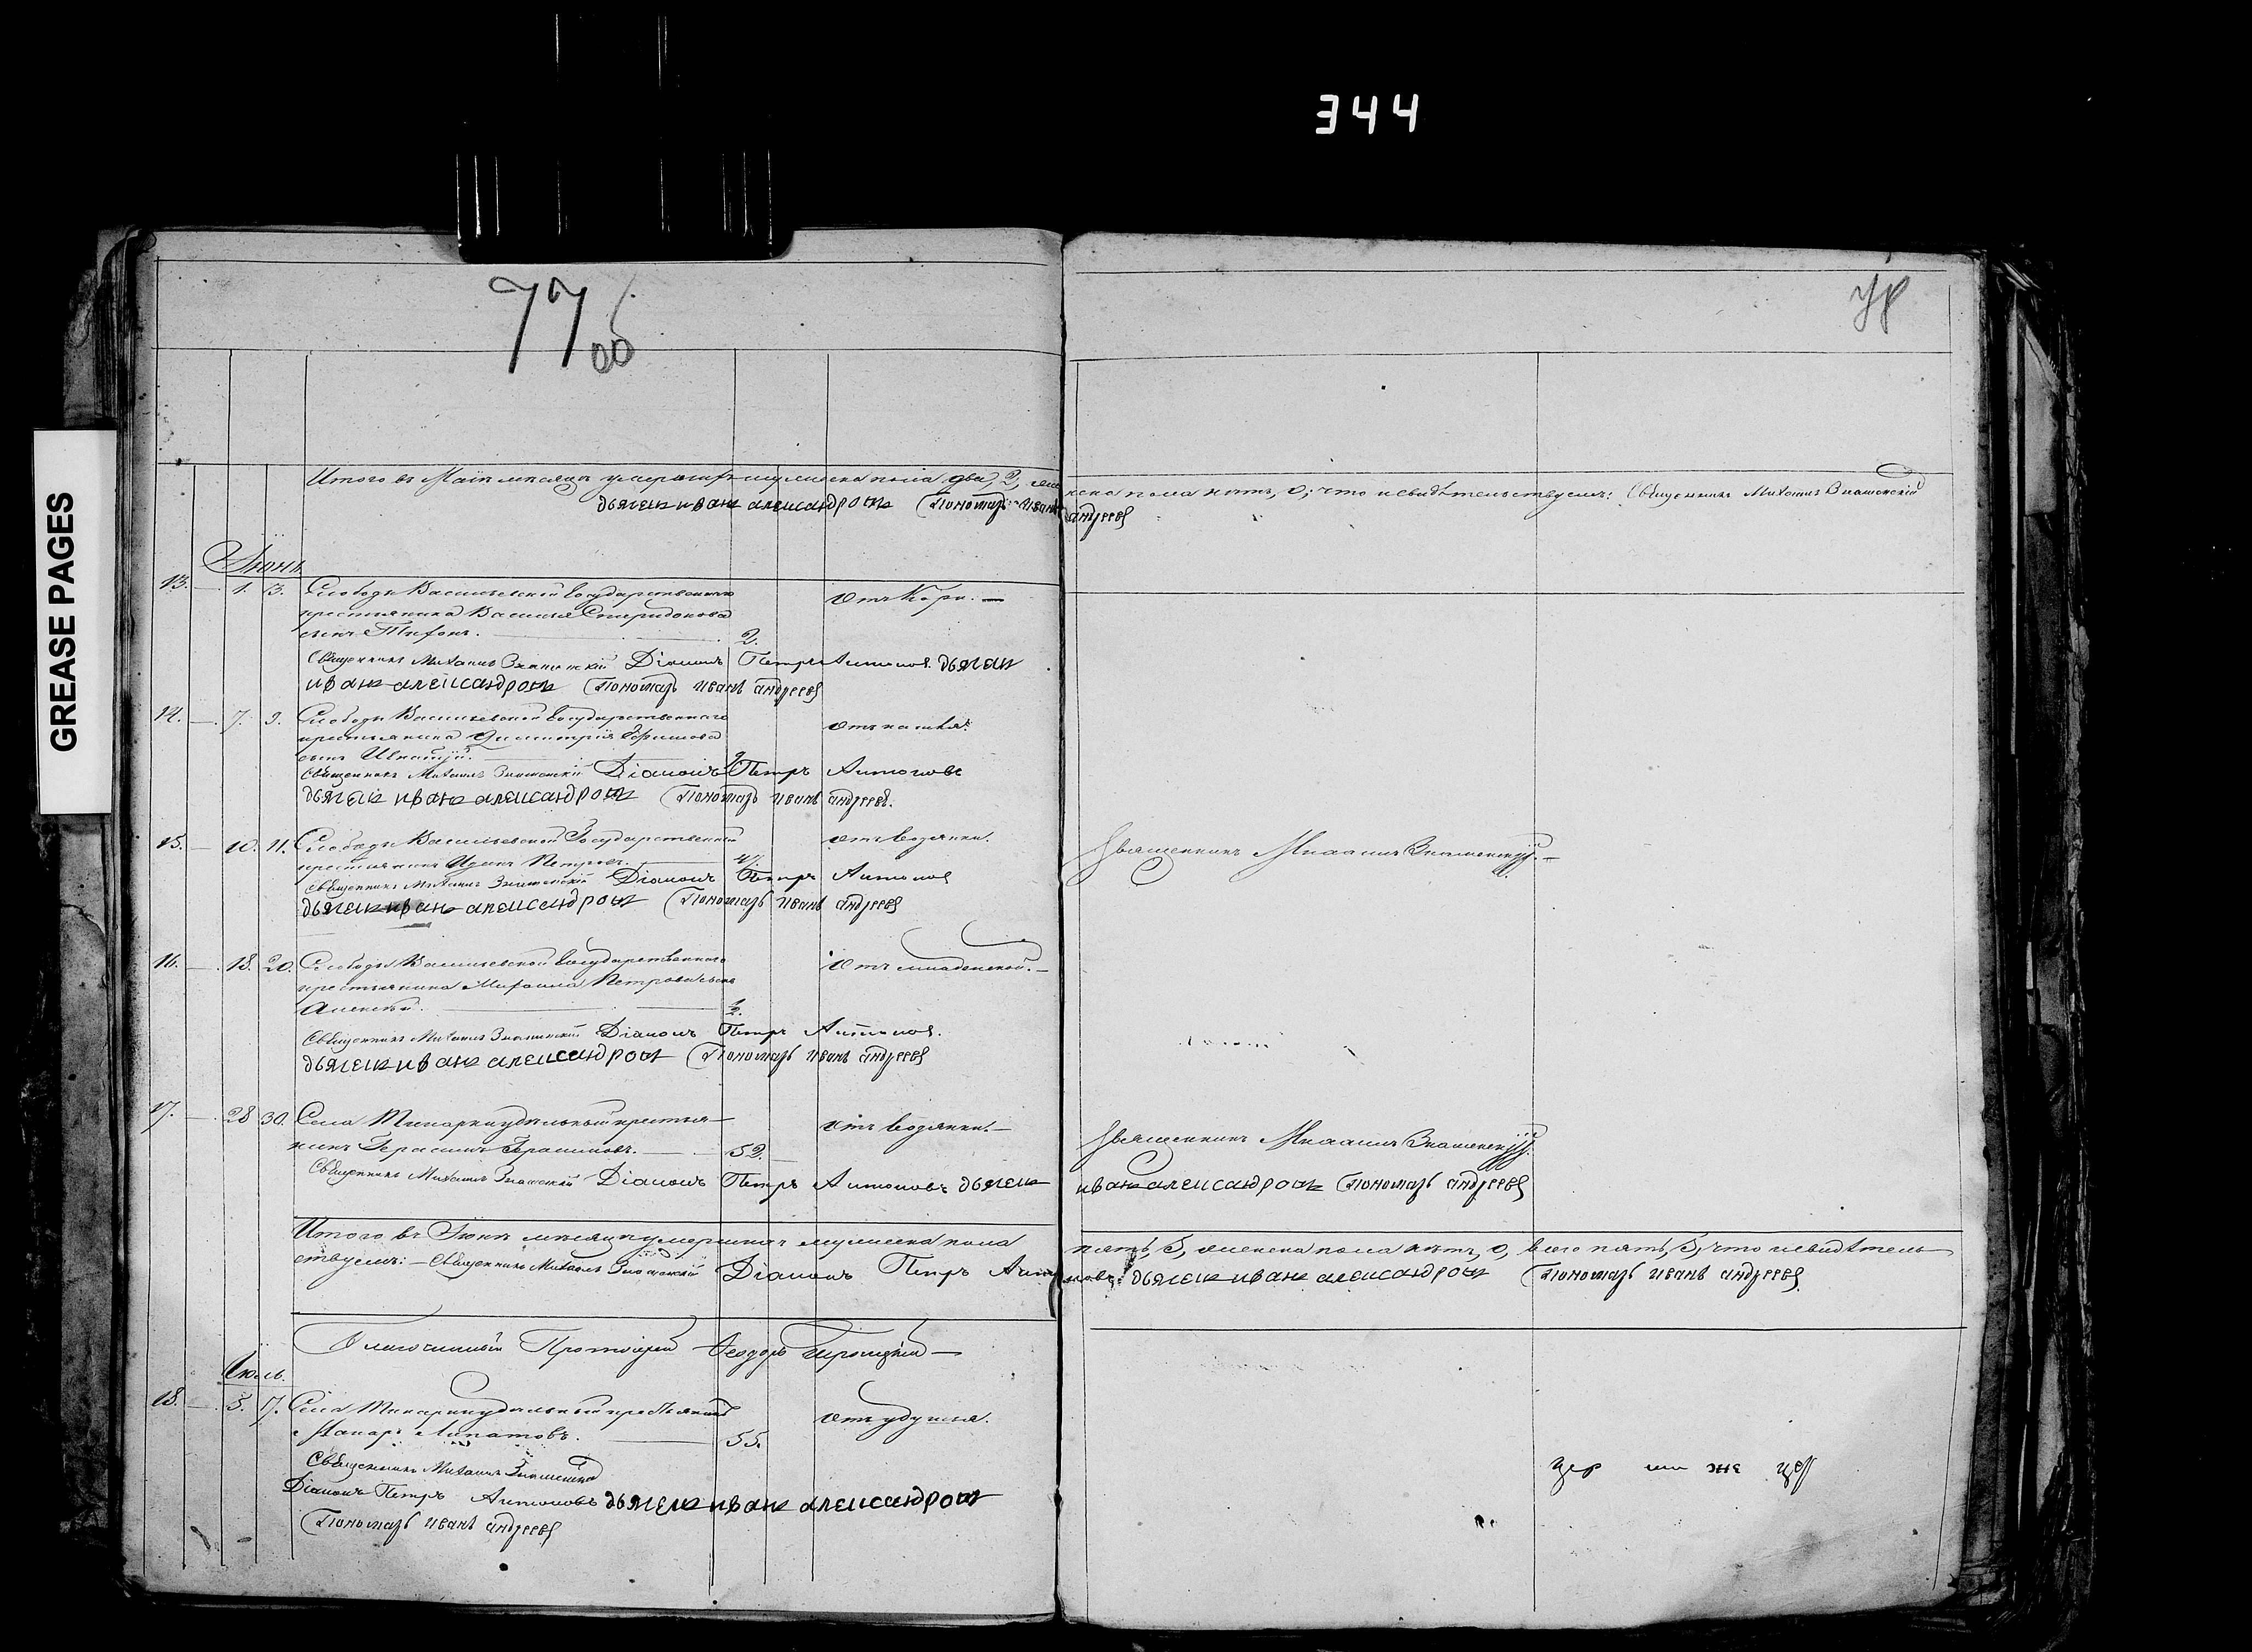 344
GREASE PAGES
77 об
78
Итого въ Маiѣ мѣсяцѣ умершихъ мужеска пола два, 2, женска пола нѣтъ, 0; что и свидѣтельствуемъ: Священникъ Михаилъ Знаменскiй
дьячекъ иванъ александровъ Пономарь иванъ андреевъ
Iюнь
13. — 1. 3. Слободы Васильевской государственнаго
крестьянина Василья Спиридонова
сынъ Тифонъ. 2. Отъ Кори. —
Священникъ Михаилъ Знаменскiй Дiаконъ Петръ Антоновъ. дьячекъ
иванъ александровъ Пономарь иванъ андреевъ
14. — 7. 9. Слободы Васильевской государственнаго
крестьянина Димитрiя Ефимова
сынъ Игнатiй. Отъ кашля.
Священникъ Михаилъ Знаменскiй Дiаконъ Петръ Антоновъ
дьячекъ иванъ александровъ Пономарь иванъ андреевъ.
15. — 10. 11. Слободы Васильевской Государственный
крестьянинъ Петровъ. 47. Отъ водянки. Священникъ Михаилъ Знаменскiй. —
Священникъ Михаилъ Знаменскiй Дiаконъ Петръ Антоновъ
дьячекъ иванъ александровъ Пономарь иванъ андреевъ
16. — 18. 20. Слободы Васильевской Государственнаго
крестьянина Михаила Петрова сынъ
Алексѣй. 1/2. Отъ младенской. —
Священникъ Михаилъ Знаменскiй Дiаконъ Петръ Антоновъ.
дьячекъ иванъ александровъ Пономарь иванъ андреевъ
17. — 28 30. Села удѣльный крестья-
нинъ Герасимъ Герасимовъ. 52. Отъ водянки. — Священникъ Михаилъ Знаменскiй.
Священникъ Михаилъ Знаменскiй Дiаконъ Петръ Антоновъ дьячекъ иванъ александровъ Пономарь андреевъ
Итого въ Iюнѣ мѣсяцѣ умершихъ мужеска пола пять, 5, женска пола нѣтъ, 0, всего пять, 5, что и свидѣтель-
ствуемъ: — Священникъ Михаилъ Знаменскiй Дiаконъ Петръ Антоновъ: дьячекъ иванъ александровъ Пономарь иванъ андреевъ.
Благочинный Протоiерей Ѳеодоръ Троицкiй —
Iюль.
18. — 5. 7. Села удѣльный крестьянинъ
Макаръ Липатовъ. 55. Отъ удушья.
Священникъ Михаилъ Знаменскiй
Дiаконъ Петръ Антоновъ дьячекъ иванъ александровъ
Пономарь иванъ андреевъ